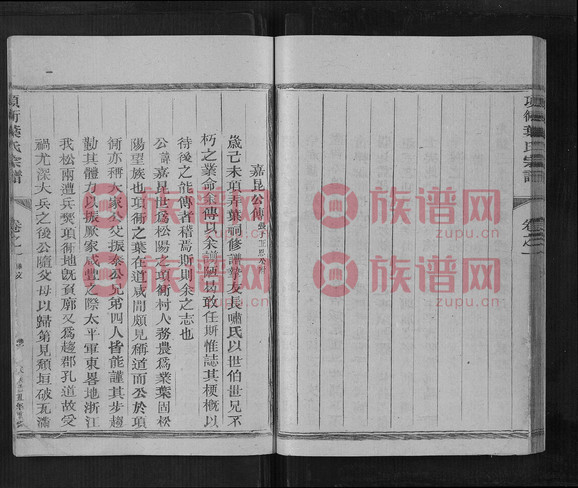 項衕葉氏宗譜
卷之一
嘉昆公傳
歲己未項弄葉祠修譜摯友長嘯氏以世伯世兄不
朽之業命余傳以余譾陋曷敢任斯惟誌其梗概以
待後之能傳者稽焉斯則余之志也
公諱嘉昆世爲松陽之項衕村人務農爲業葉固松
陽望族也項衕之葉在道咸間頗見稱道而公於項
衕亦稱大家公父振泰公兄弟四人皆能謹其步趨
勤其體力以振厥家咸豐之際太平軍東畧地浙江
我松兩遭兵燹項衕地旣負廓又爲趨郡孔道故受
禍尤深大兵之後公隨父母以歸第見頹垣破瓦滿
項衕葉氏宗譜
卷之一
族谱网
zupu.cn
族谱网
zupu.cn
族谱网
zupu.cn
族谱网
zupu.cn